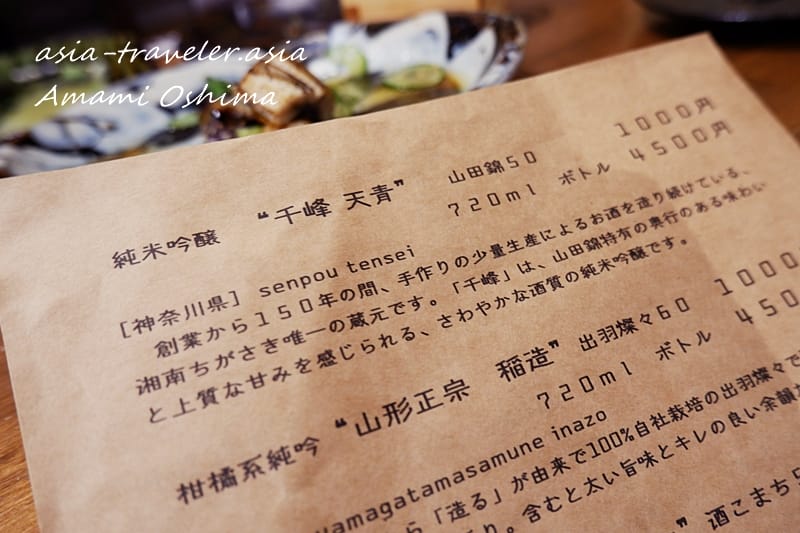 asia-traveler.asia
Amami Oshima
純米吟醸 “千峰 天青” 山田錦50 1000円
720ml ボトル 4500円
[神奈川県] senpou tensei
創業から150年の間、手作りの少量生産によるお酒を造り続けている、
湘南ちがさき唯一の蔵元です。「千峰」は、山田錦特有の奥行のある味わい
と上質な甘みを感じられる、さわやかな酒質の純米吟醸です。
柑橘系純吟 “山形正宗 稲造” 出羽燦々60 1000
720ml ボトル 450
yamagatamasamune inazo
「造る」が由来で100%自社栽培の出羽燦々で
り。含むと太い旨味とキレの良い余韻が
” 酒こまち5